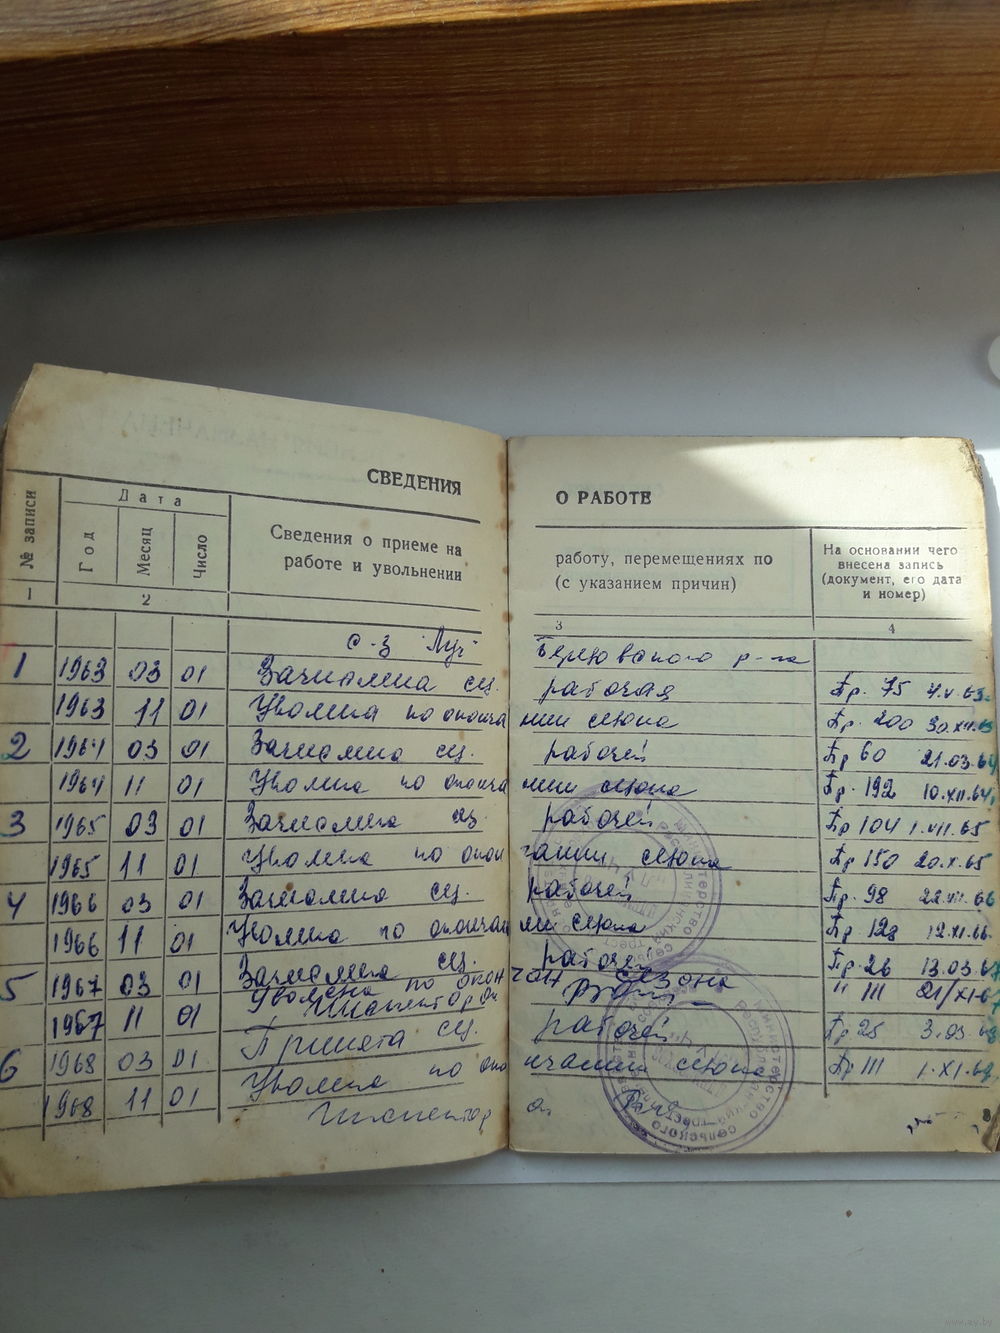 СВЕДЕНИЯ О РАБОТЕ
№ записи
Дата
Год
Месяц
Число
Сведения о приеме на работу, перемещениях по
работе и увольнении (с указанием причин)
На основании чего
внесена запись
(документ, его дата
и номер)
1 2 3 4
с-з "Луч"
1 1963 03 01 Зачислена сез. рабочая Пр. 75 4.V.63
1963 11 01 Уволена по окончании сезона Пр. 200 30.XII.63
2 1964 03 01 Зачислена сез. рабочей Пр 60 21.03.64
1964 11 01 Уволена по окончании сезона Пр. 192 10.XII.64
3 1965 03 01 Зачислена сез. рабочей Пр 104 1.VII.65
1965 11 01 Уволена по окончании сезона Пр 150 20.X.65
4 1966 03 01 Зачислена сез. рабочей Пр. 98
1966 11 01 Уволена по окончании сезона Пр. 128 12.XI.66
5 1967 03 01 Зачислена сез. рабочей Пр. 26 13.03.67
1967 11 01 Уволена по окончан сезона " 111 21/XI-67
Инспектор
6 1968 03 01 Принята сез. рабочей Пр 25 3.03.68
1968 11 01 Уволена по окончании сезона Пр 111 1.XI.68
Инспектор
www.ay.by